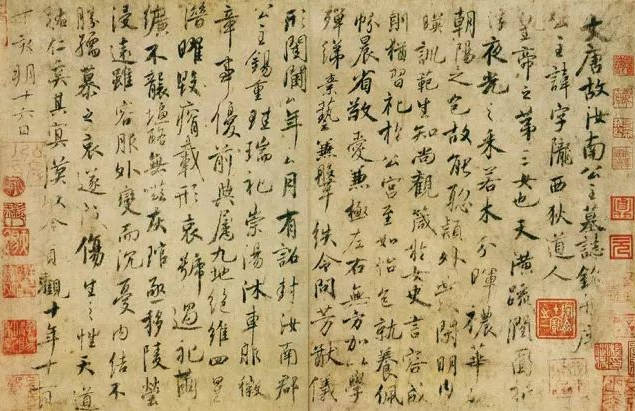 大唐故汝南公主墓誌銘并序
公主諱字隴西狄道人
皇帝之第三女也天潢疏潤圓折
浮夜光之采若木分暉穠華
朝陽之色故能聰穎外發閑明內
暎訓範生知尚觀箴於女史言容成
則猶習礼於公宮至如怡色就養佩
帉晨省敬愛兼極左右無方加以學
殫緗素藝兼鞶紩令問芳猷儀
形閨閫厶年厶月有詔封汝南郡
公主錫重珪瑞礼崇湯沐車服徽
章事優前典屬九地絕維四星
潛曜毀瘠載形哀號過礼繭
纊不襲塩酪無嗞灰琯亟移陵塋
浸遠雖容服外變而沉憂內結不
勝孺慕之哀遂成傷生之性天道
祐仁奚其冥漠以今貞觀十年十一
丁亥朔十六日